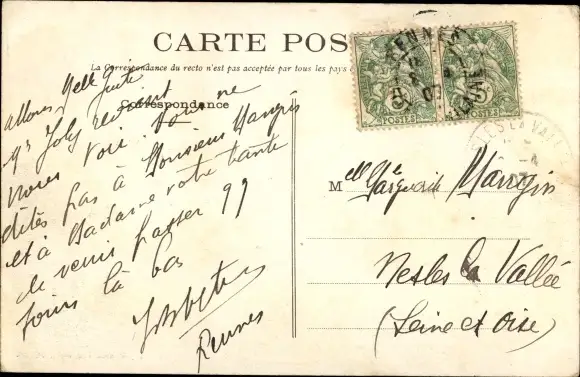 CARTE POS
La Correspondance du recto n'est pas acceptée par tous les pays
Correspondance
Allons, Melle Guite
Mr Joly revient
nous voir. Vous ne
dites pas à Monsieur Mangin
et à Madame votre tante
de venir passer 99
jours là bas
Rennes
5 5
POSTES POSTES
RENNES
NESLES LA VALLÉE
Melle Marguerite Mangin
Nesles la Vallée
(Seine et Oise)